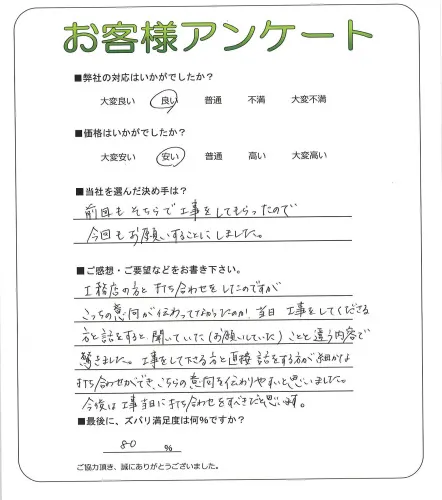 お客様アンケート
■弊社の対応はいかがでしたか?
大変良い 良い 普通 不満 大変不満
■価格はいかがでしたか?
大変安い 安い 普通 高い 大変高い
■当社を選んだ決め手は?
前回もそちらで工事をしてもらったので
今回もお願いすることにしました。
■ご感想・ご要望などをお書き下さい。
工務店の方と打ち合わせをしたのですが
こっちの意向が伝わってなかったのか、当日工事をしてくださる
方と話をすると聞いていた(お願いしていた)ことと違う内容で
驚きました。工事をして下さる方と直接話をする方が細かな
打ち合わせができ、こちらの意向を伝わりやすいと思いました。
今後は工事当日に打ち合わせをすべきだと思います。
■最後に、ズバリ満足度は何%ですか?
80 %
ご協力頂き、誠にありがとうございました。